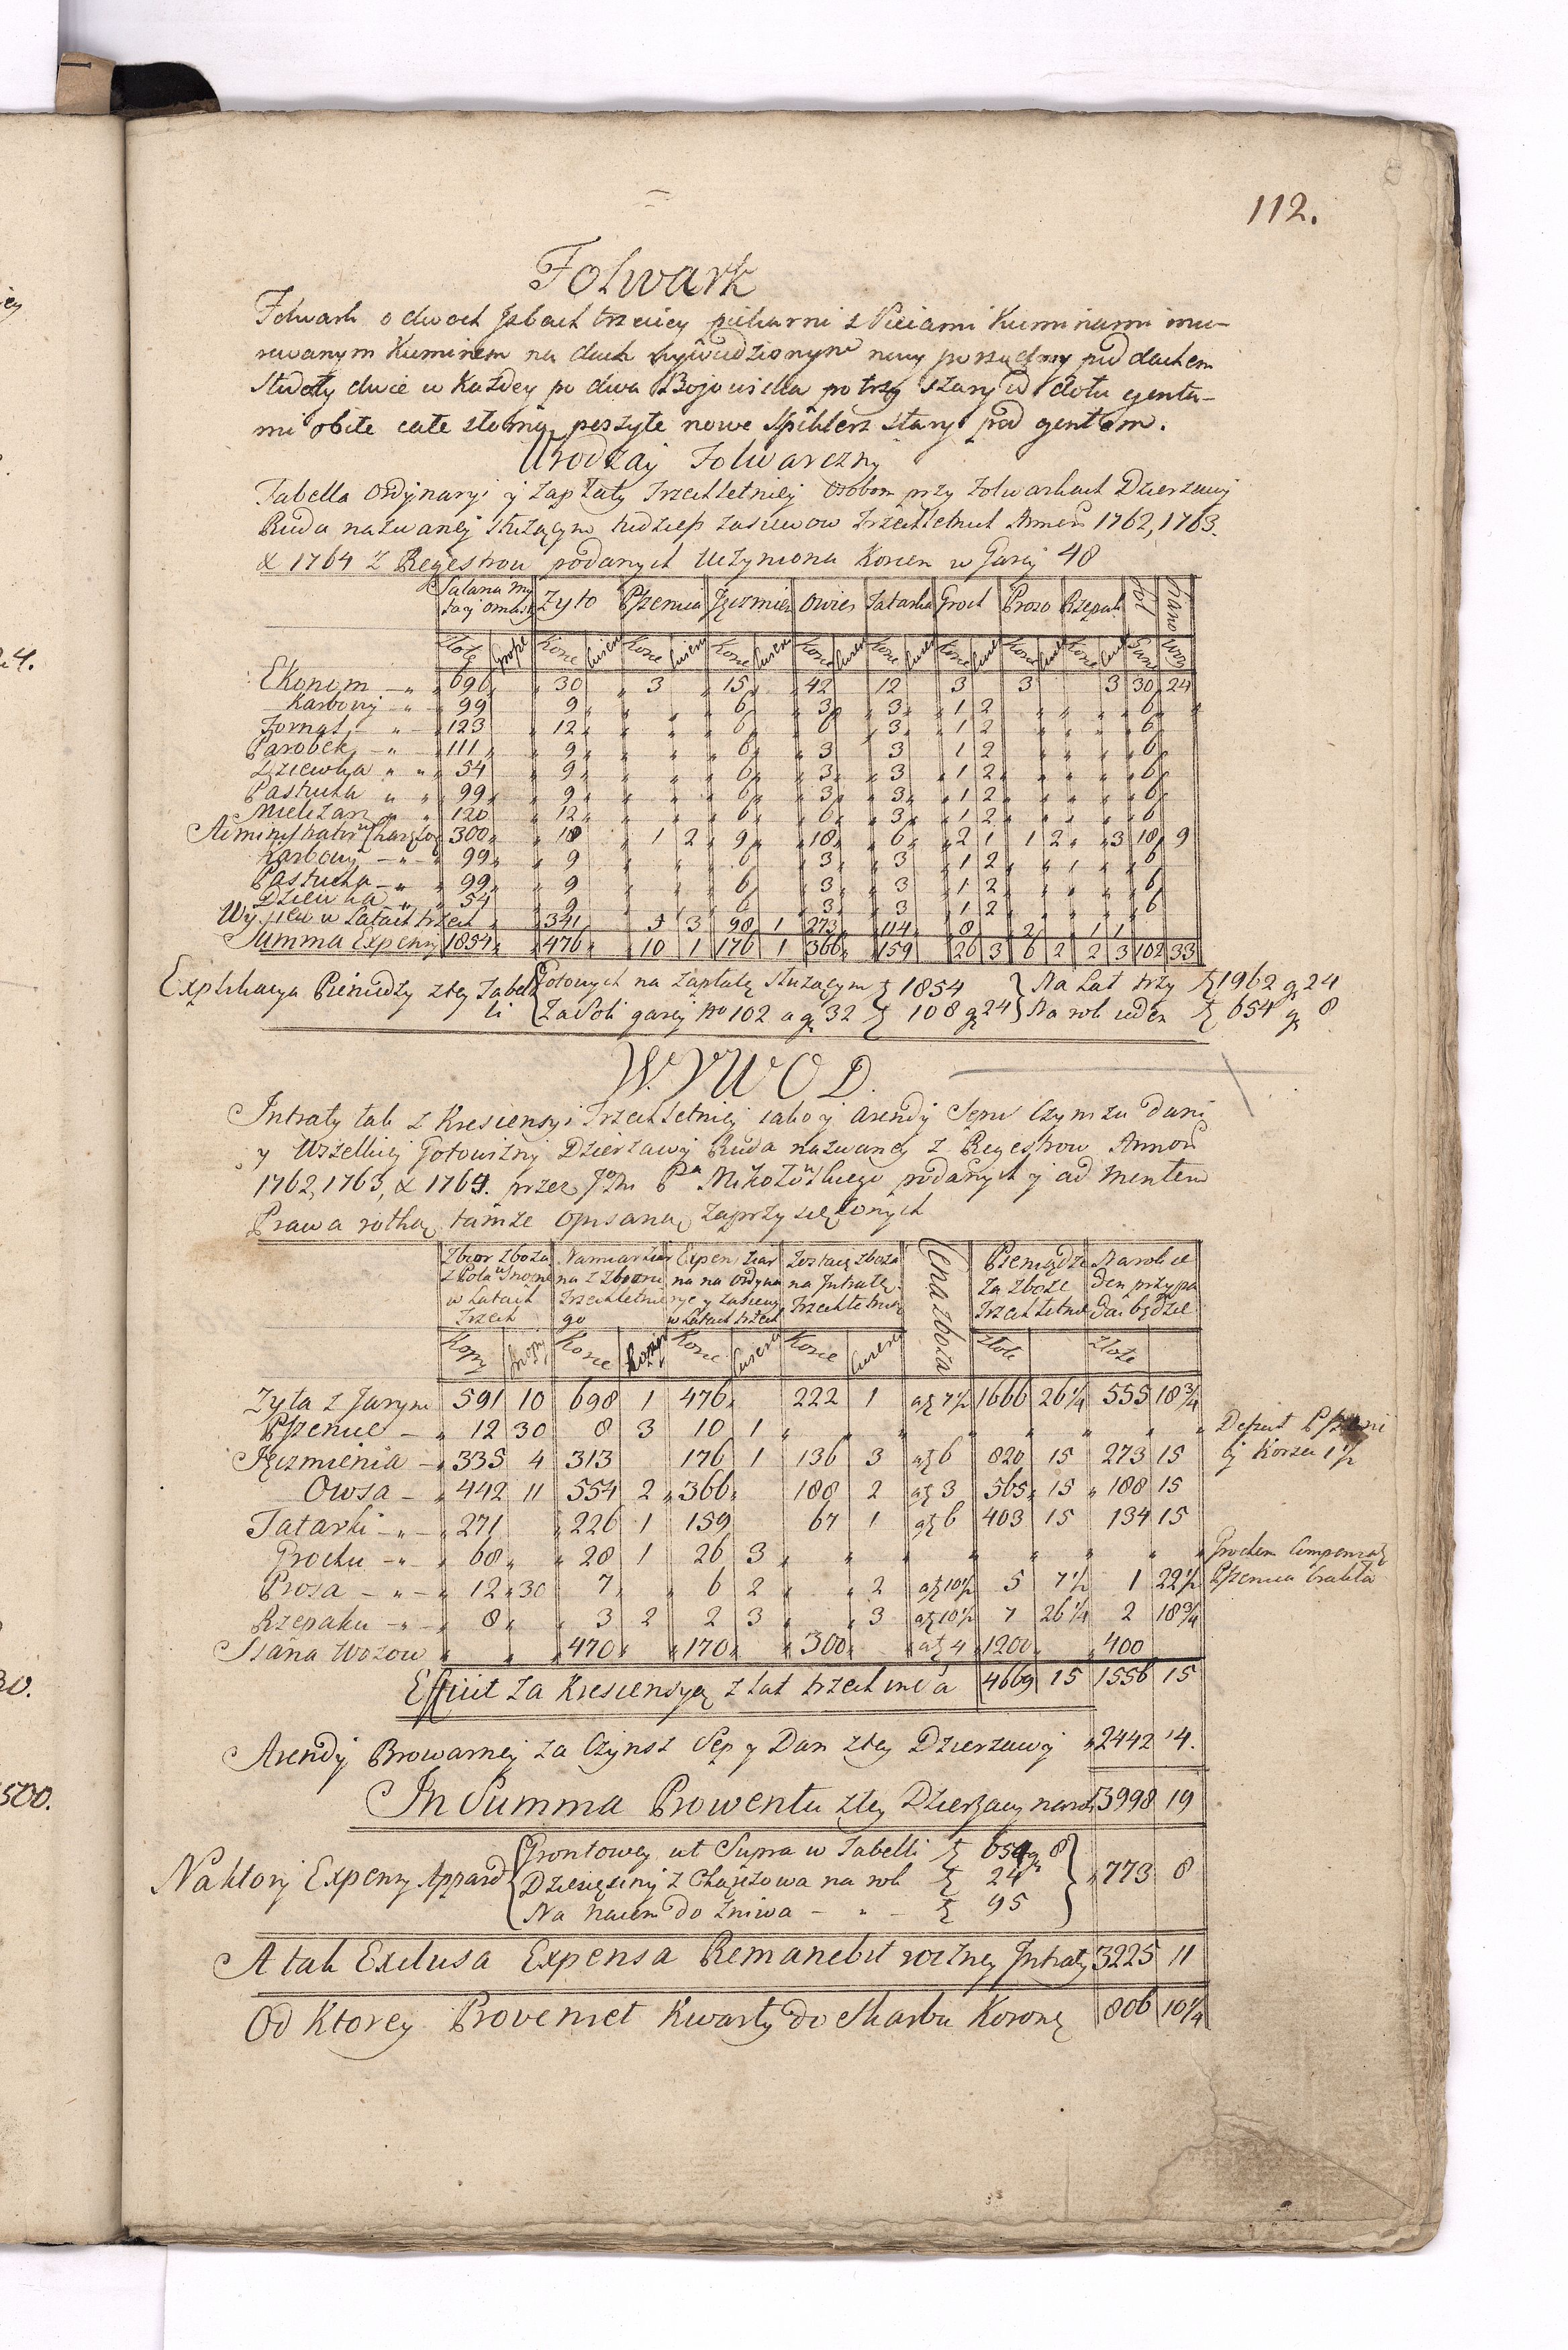 112.
Folwark
Folwark o dwoch Jzbach trzeciey piekarni z Sieciami Kuminami mu-
rowanym Kuminem na dach wywiedzionym nowy porządny pod dachem
Stodoły dwie w Każdey po dwa Bojowiska po trzy stary w dołu gonta-
mi obite całe słomą poszyte nowe Spiklerz stary pod gontem.
Urodzaj Folwarczny
Tabella Ordynaryi y zapłaty Trzechletniey Osobom przy Folwarkach Dzierzawy
Ruda nazwaney służącym tudzież zasiewow Trzechletnich Annor 1762, 1763.
& 1764 z Regestrow podanych Uczyniona Korzec w Garcy 48
Żyto Pszenica Jęczmień Owies Tatarka Groch Proso Rzepak Sol Siano
Ekonom 696 30 3 15 42 12 3 3 3 30 24
Karbowy 99 9 6 3 3 1 2 6
Fornal 123 12 6 6 3 1 2 6
Parobek 111 9 6 3 3 1 2 6
Dziewka 54 9 6 3 3 1 2 6
Pastucha 99 9 6 3 3 1 2 6
120 12 6 6 3 1 2 6
300 18 1 2 9 18 6 2 1 1 2 3 18 9
Karbowy 99 9 6 3 3 1 2 6
Pastucha 99 9 6 3 3 1 2 6
Dziewka 54 9 6 3 3 1 2 6
Wysiew w Latach trzech 341 5 3 98 1 273 114 8 2 1 1
Summa Expensy 1854 476 10 1 176 1 366 159 26 3 6 2 2 3 102 33
Explikacya Pieniedzy z tey Tabelli Gotowych na zapłatę służącym zł 1854 Na Lat trzy zł 1962 gr 24
Za Soli garcy No 102 a gr 32 zł 108 gr 24 Na rok ieden zł 654 gr 8
WYWOD.
Intraty tak z Kresiensyi Trzechletniey iako y Arendy Sepu Czynszu Dani
y Wszelkiey Gotowizny Dzierzawy Ruda nazwaney z Regestrow Annor
1762, 1763, & 1764. przez Jmci Pa Mikołowskiego podanych y ad mentem
Prawa rothą tamże opisaną zaprzysiężonych
Zbior zboża z Pola w Snopie w Latach Trzech
Namiar Ziarna z Zboru Trzechletniego
Expens ziarna na Ordynaryę y zasiewy w Latach trzech
Zostaię zboza na Intratę Trzechletnią
Cena zboża
Pieniądze za zboże Trzechletnie
Na rok ieden przypadać będzie
Kopy Korce Korce Korce Złote Złote
Zyta z Jarym 591 10 698 1 476 222 1 a zł 7½ 1666 26¼ 555 18¾
Pszenice 12 30 8 3 10 1
Jęczmienia 335 4 313 176 1 136 3 a zł 6 820 15 273 15
Owsa 442 11 554 2 366 188 2 a zł 3 565 15 188 15
Tatarki 271 226 1 159 67 1 a zł 6 403 15 134 15
Grochu 68 28 1 26 3
Prosa 12 30 7 6 2 2 a zł 10½ 5 7½ 1 22½
Rzepaku 8 3 2 2 3 3 a zł 10½ 7 26¼ 2 18¾
Siana Wozow 470 170 300 a zł 4 1200 400
Defect Pszenicy Korzec 1½
Grochem Compensatę Pszenica
Efficit za Kresiensyą z Lat trzech 4669 15 1556 15
Arendy Browarney za Czynsz Sep y Dan z tey Dzierzawy 2442 4.
In Summa Prowentu z tey Dzierzawy na rok 3998 19
Na ktory Expensy Gruntowey ut Supra w Tabelli zł 654 gr 8
Dziesięciny z na rok zł 24
Na naiem do żniwa zł 95
773 8
A tak Exclusa Expensa Remanebit roczney Intraty 3225 11
Od Ktorey Proveniet Kwarty do Skarbu Koronę 806 10¼